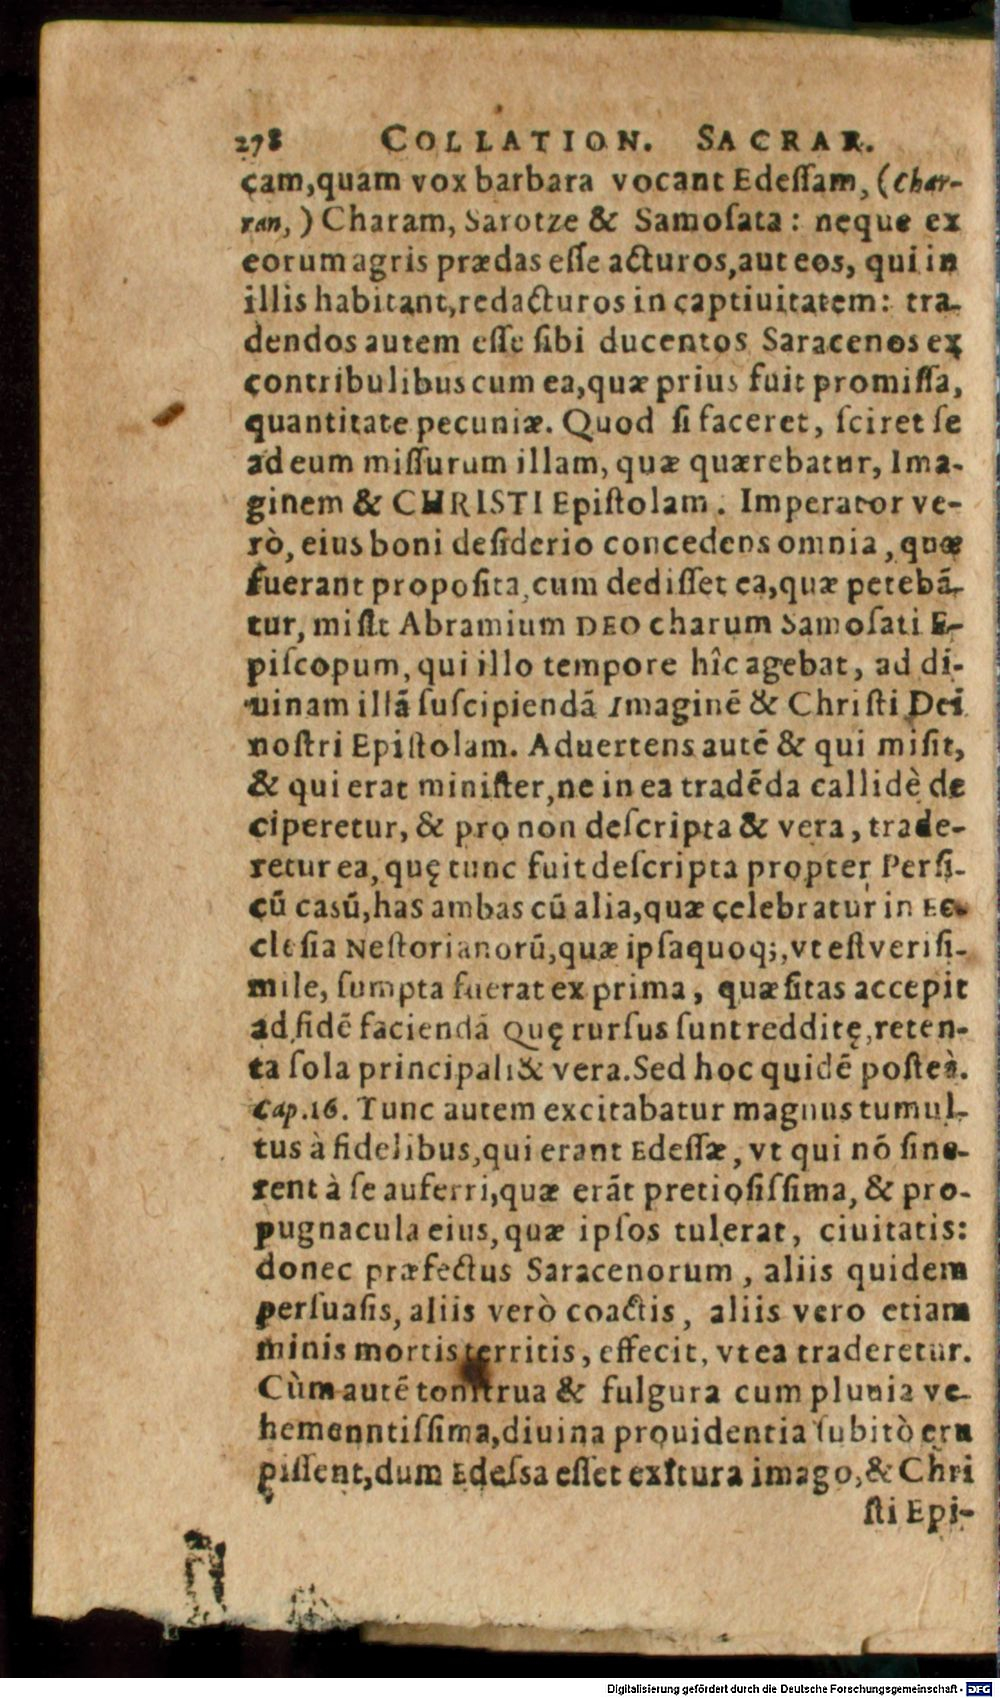 278 COLLATION. SACRAR.
cam,quam vox barbara vocant Edeſſam, (Char-
ran, ) Charam, Sarotze & Samoſata : neque ex
eorum agris prædas eſſe acturos,aut eos, qui in
illis habitant,redacturos in captiuitatem: tra-
dendos autem eſſe ſibi ducentos Saracenos ex
contribulibus cum ea,quæ prius fuit promiſſa,
quantitate pecuniæ. Quod ſi faceret, ſciret ſe
ad eum miſſurum illam, quæ quærebatur, Ima-
ginem & CHRISTI Epiſtolam. Imperator ve-
rò, eius boni deſiderio concedens omnia, quæ
fuerant propoſita,cum dediſſet ea,quæ petebã-
tur, miſit Abramium DEO charum Samoſati E-
piſcopum, qui illo tempore hîc agebat, ad di-
uinam illã ſuſcipiendã Imaginē & Chriſti Dei
noſtri Epiſtolam. Aduertens autē & qui miſit,
& qui erat miniſter,ne in ea tradēda callidè de
ciperetur, & pro non deſcripta & vera, trade-
retur ea, quę tunc fuit deſcripta propter Perſi-
cū caſū,has ambas cū alia,quæ celebratur in Ec-
cleſia Neſtorianorū,quæ ipſa quoq;,vt eſt veriſi-
mile, ſumpta fuerat ex prima, quæſitas accepit
ad fidē faciendã Quę rurſus ſunt redditę,reten-
ta ſola principali & vera.Sed hoc quidē poſteà.
Cap.16. Tunc autem excitabatur magnus tumul-
tus à fidelibus,qui erant Edeſſæ, vt qui nō ſine-
rent à ſe auferri,quæ erãt pretioſiſſima, & pro-
pugnacula eius, quæ ipſos tulerat, ciuitatis:
donec præfectus Saracenorum, aliis quidem
perſuaſis, aliis verò coactis, aliis vero etiam
minis mortis territis, effecit, vt ea traderetur.
Cùm autē tonitrua & fulgura cum pluuia ve-
hemenntiſſima,diuina prouidentia ſubitò eru
piſſent,dum Edeſsa eſſet exitura imago,& Chri
ſti Epi-
Digitalisierung gefördert durch die Deutsche Forschungsgemeinschaft - DFG